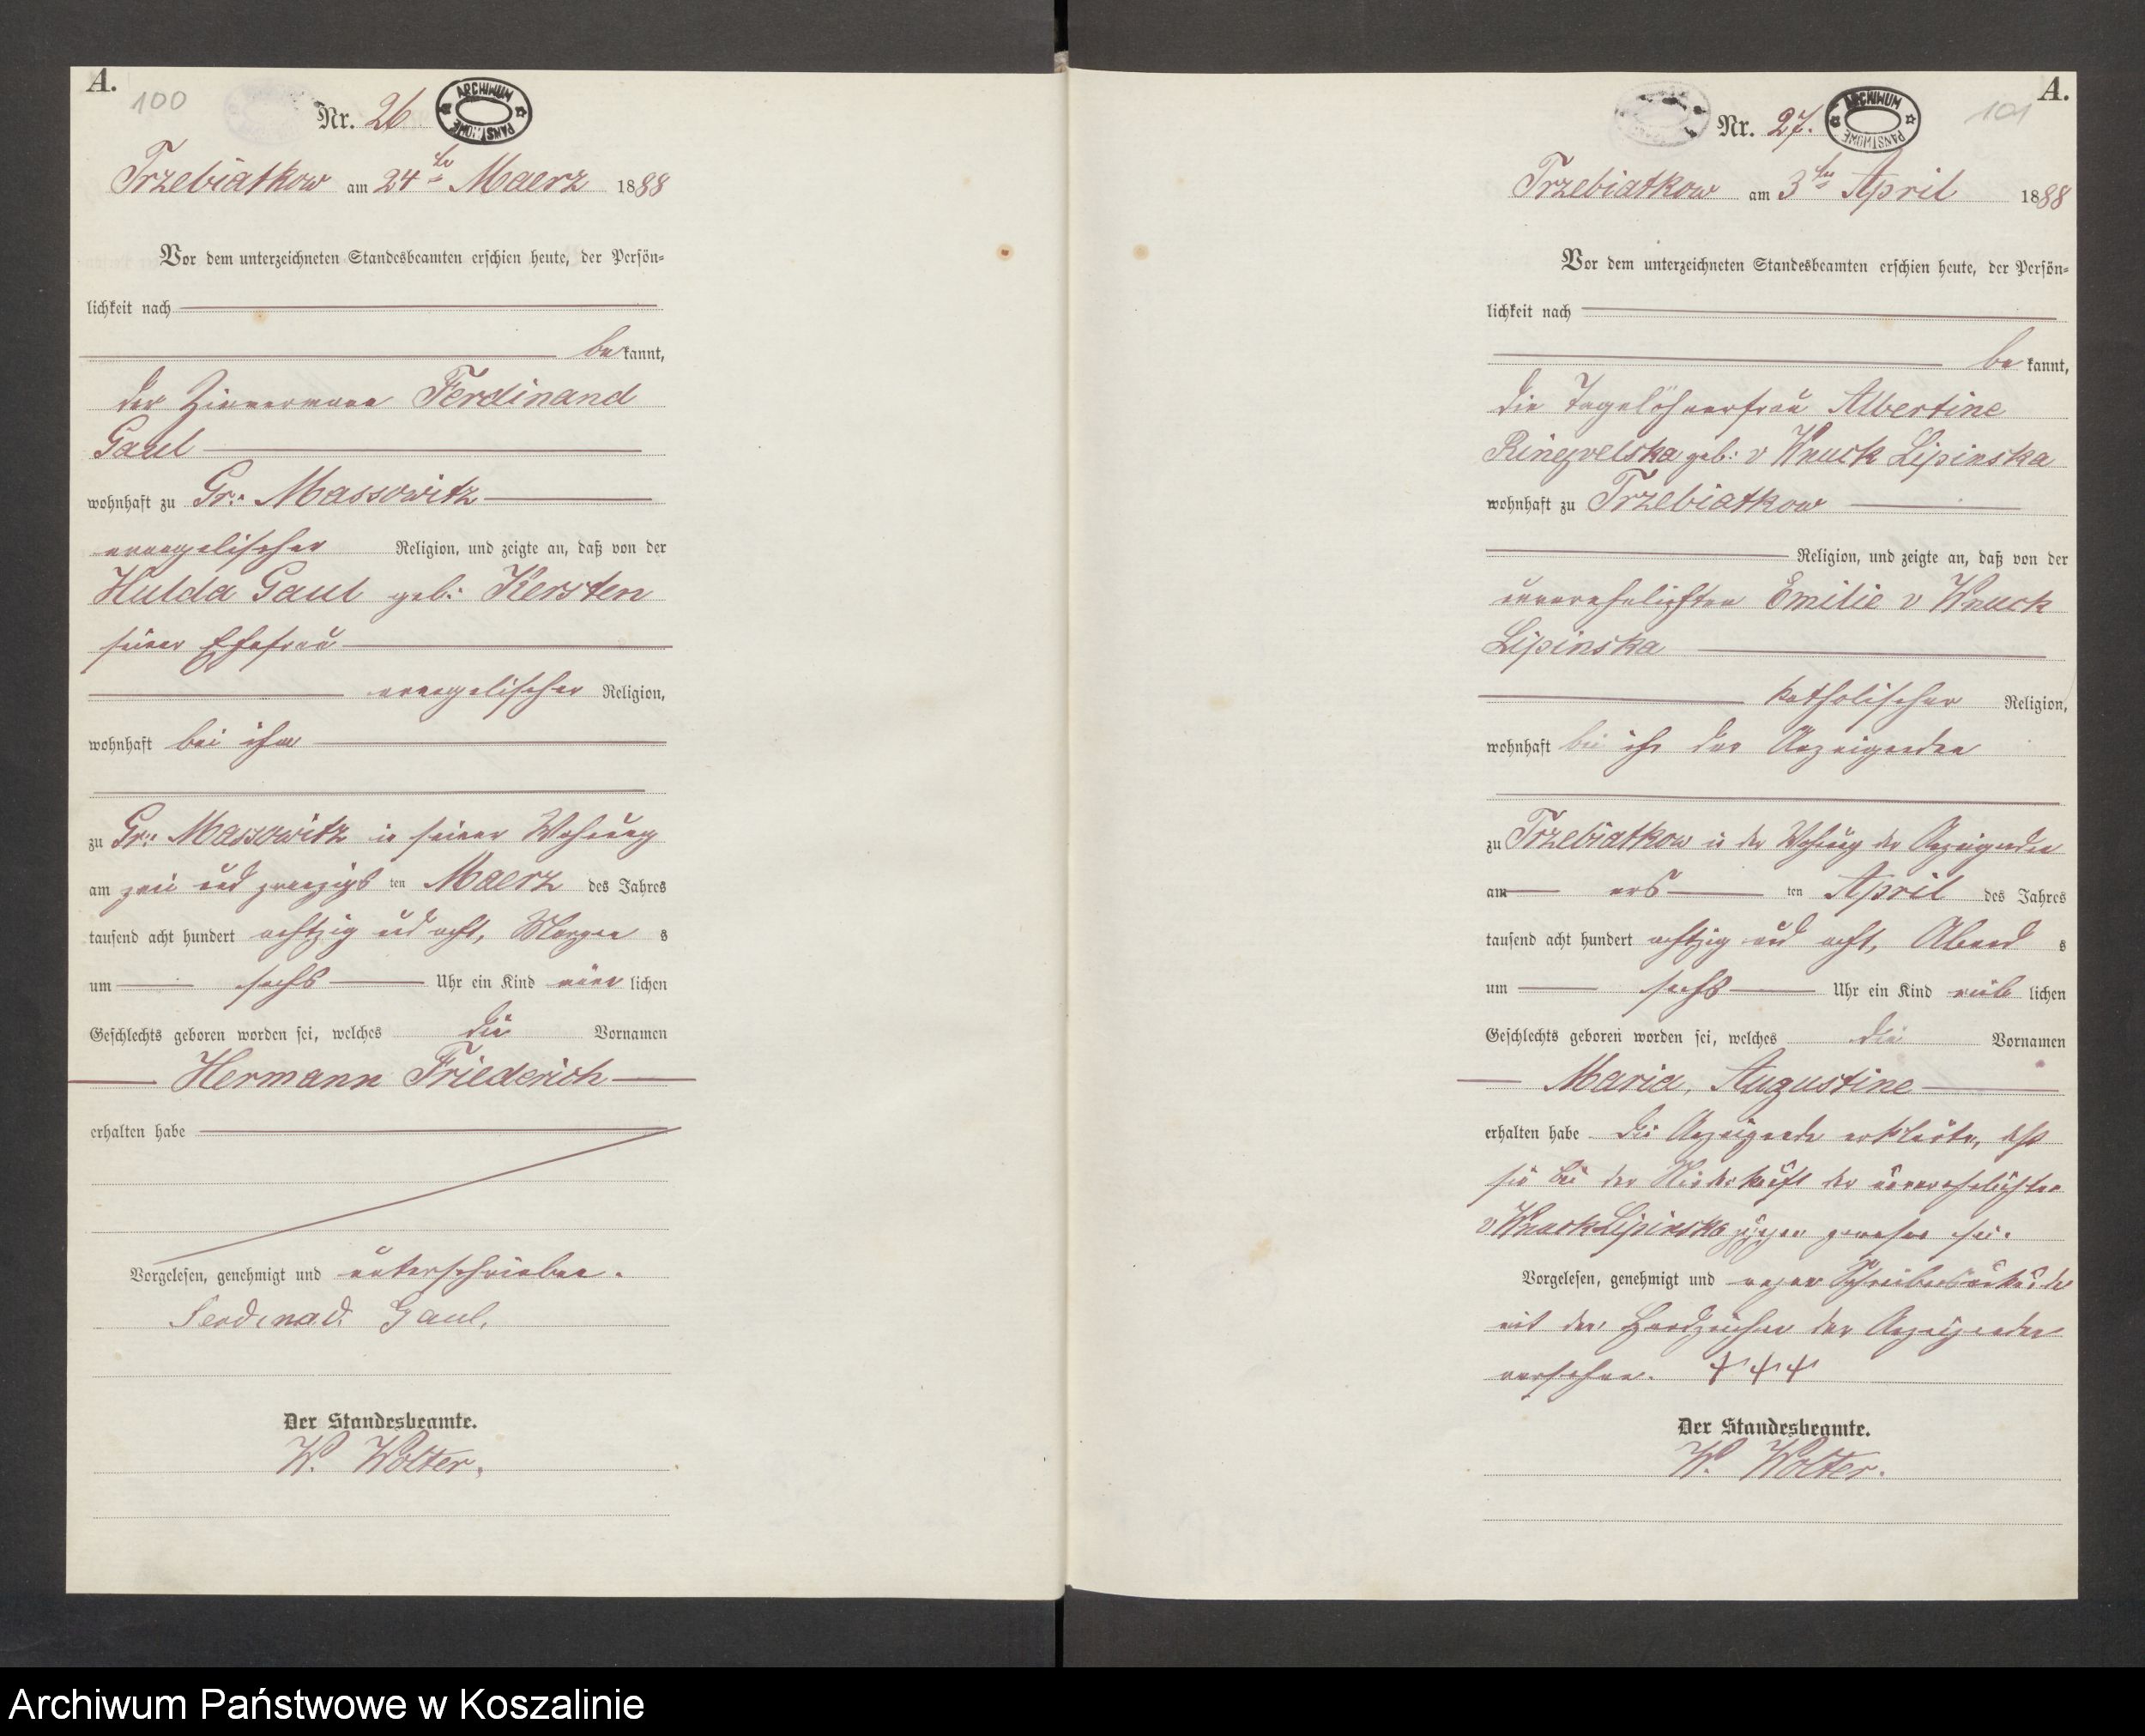 A.
100
Nr. 26
ARCHIWUM PAŃSTWOWE
Trzebiatkow am 24ten Maerz 1888
Vor dem unterzeichneten Standesbeamten erschien heute, der Persön-
lichkeit nach
bekannt,
der Zimmermann Ferdinand
Gaul
wohnhaft zu Gr: Massowitz
evangelischer Religion, und zeigte an, daß von der
Hulda Gaul geb: Kersten
seiner Ehefrau
evangelischer Religion,
wohnhaft bei ihm
zu Gr: Massowitz in seiner Wohnung
am zwei und zwanzigsten Maerz des Jahres
tausend acht hundert achtzig und acht, Morgens
um sechs Uhr ein Kind männlichen
Geschlechts geboren worden sei, welches die Vornamen
Hermann Friederich
erhalten habe
Vorgelesen, genehmigt und unterschrieben.
Ferdinad. Gaul.
Der Standesbeamte.
W. Wolter.
A.
101
Nr. 27.
ARCHIWUM PAŃSTWOWE
Trzebiatkow am 3ten April 1888
Vor dem unterzeichneten Standesbeamten erschien heute, der Persön-
lichkeit nach
bekannt,
die Tagelöhnerfrau Albertine
geb: v Wnuck Lipinska
wohnhaft zu Trzebiatkow
Religion, und zeigte an, daß von der
unverehelichten Emilie v Wnuck
Lipinska
katholischer Religion,
wohnhaft bei ihr der Anzeigenden
zu Trzebiatkow in der Wohnung der Anzeigenden
am ersten April des Jahres
tausend acht hundert achtzig und acht, Abends
um sechs Uhr ein Kind weiblichen
Geschlechts geboren worden sei, welches die Vornamen
Maria, Augustine
erhalten habe die Anzeigende erklärte, daß
sie bei der Niederkunft der unverehelichten
v Wnuck Lipinska zugegen gewesen sei.
Vorgelesen, genehmigt und wegen Schreibensunkunde
mit dem Handzeichen der Anzeigenden
versehen. +++
Der Standesbeamte.
W. Wolter.
Archiwum Państwowe w Koszalinie